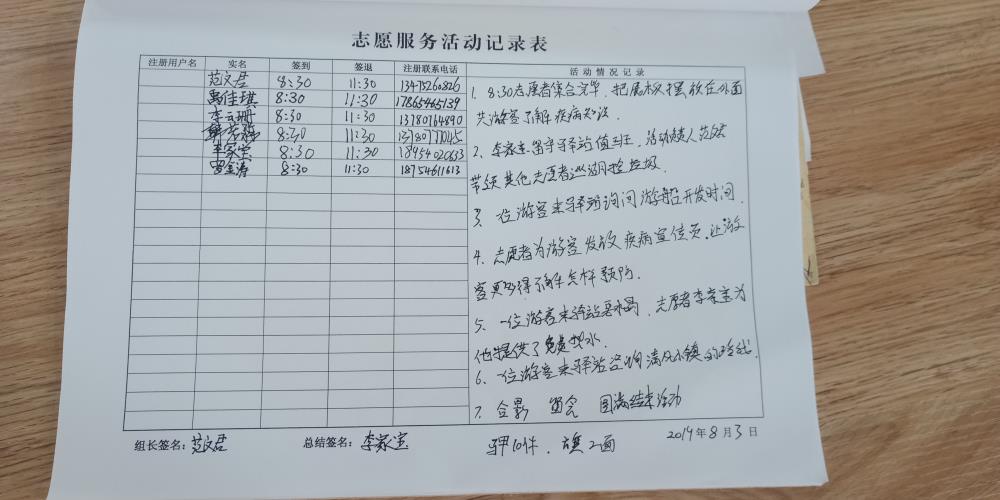 志愿服务活动记录表
注册用户名 实名 签到 签退 注册联系电话 活动情况记录
范文君 8:30 11:30 13475260826
禹佳琪 8:30 11:30 17865465139
李云珊 8:30 11:30 13780764890
8:30 11:30
李家宝 8:30 11:30 18954020633
8:30 11:30 18754611613
1. 8:30志愿者集合完毕,把展板摆放在外面
供游客了解疾病知识.
2. 李家宝留守驿站值班,活动负责人范文君
带领其他志愿者巡湖捡垃圾.
3. 一位游客来驿站询问游船开发时间.
4. 志愿者为游客发放疾病宣传页.让游
客更多得了解怎样预防.
5. 一位游客来驿站要喝,志愿者李家宝为
他提供了免费热水.
6. 一位游客来驿站咨询清风小镇的路线.
7. 合影 圆满结束活动
组长签名: 范文君 总结签名: 李家宝 马甲10件. 旗2面 2019年8月3日